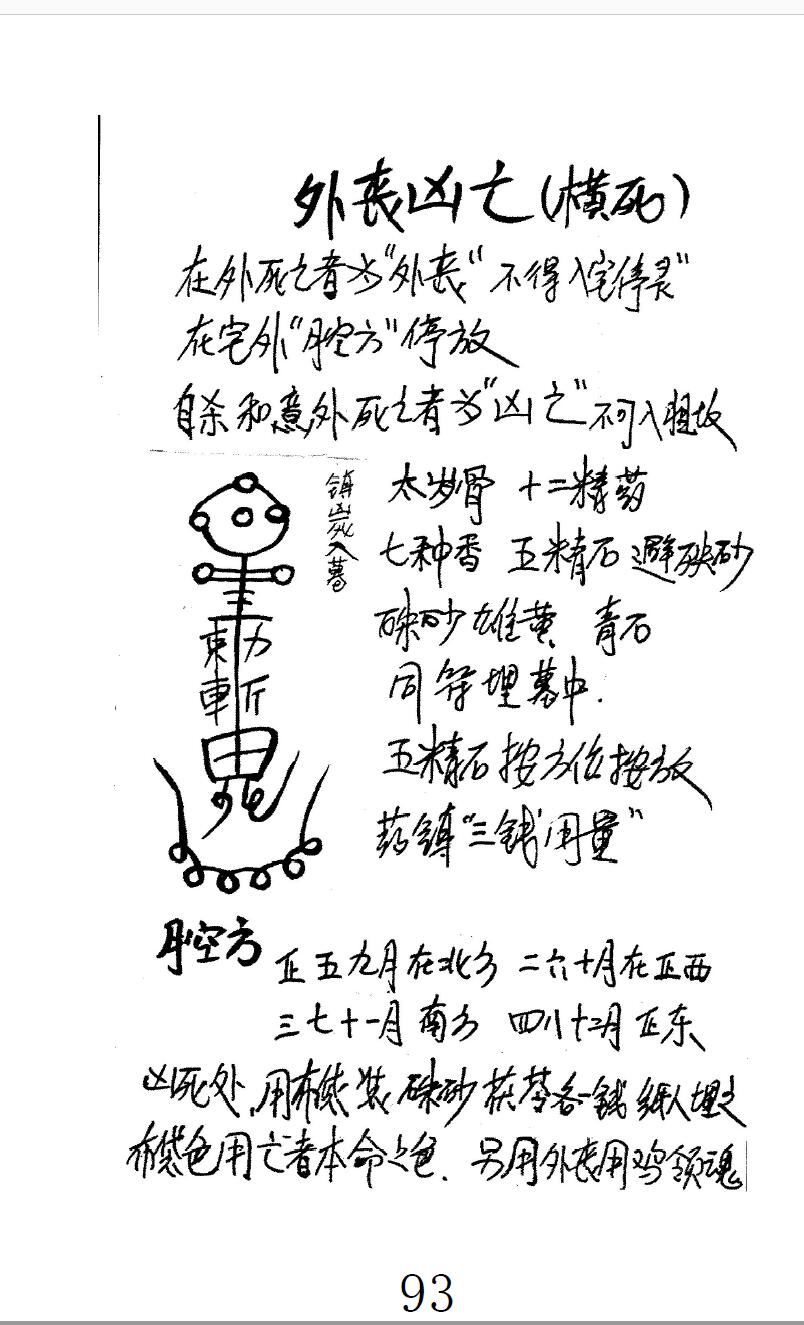 外丧凶亡(横死)
在外死之者为"外丧"不得入宅停灵"
在宅外"月空方"停放
自杀和意外死之者为"凶亡"不可入祖坟
镇凶死入墓
太岁骨 十二精药
七种香 五精石 避殃砂
硃砂 雄黄 青石
同等埋墓中.
五精石按方位按放
药镇"三钱用量"
敕力
斬
鬼
月空方 正五九月在北方 二六十月在正西
三七十一月南方 四八十二月正东
凶死处,用布袋装硃砂茯苓各一钱 纸人埋之
布袋色用亡者本命之色.另用外丧用鸡领魂
93